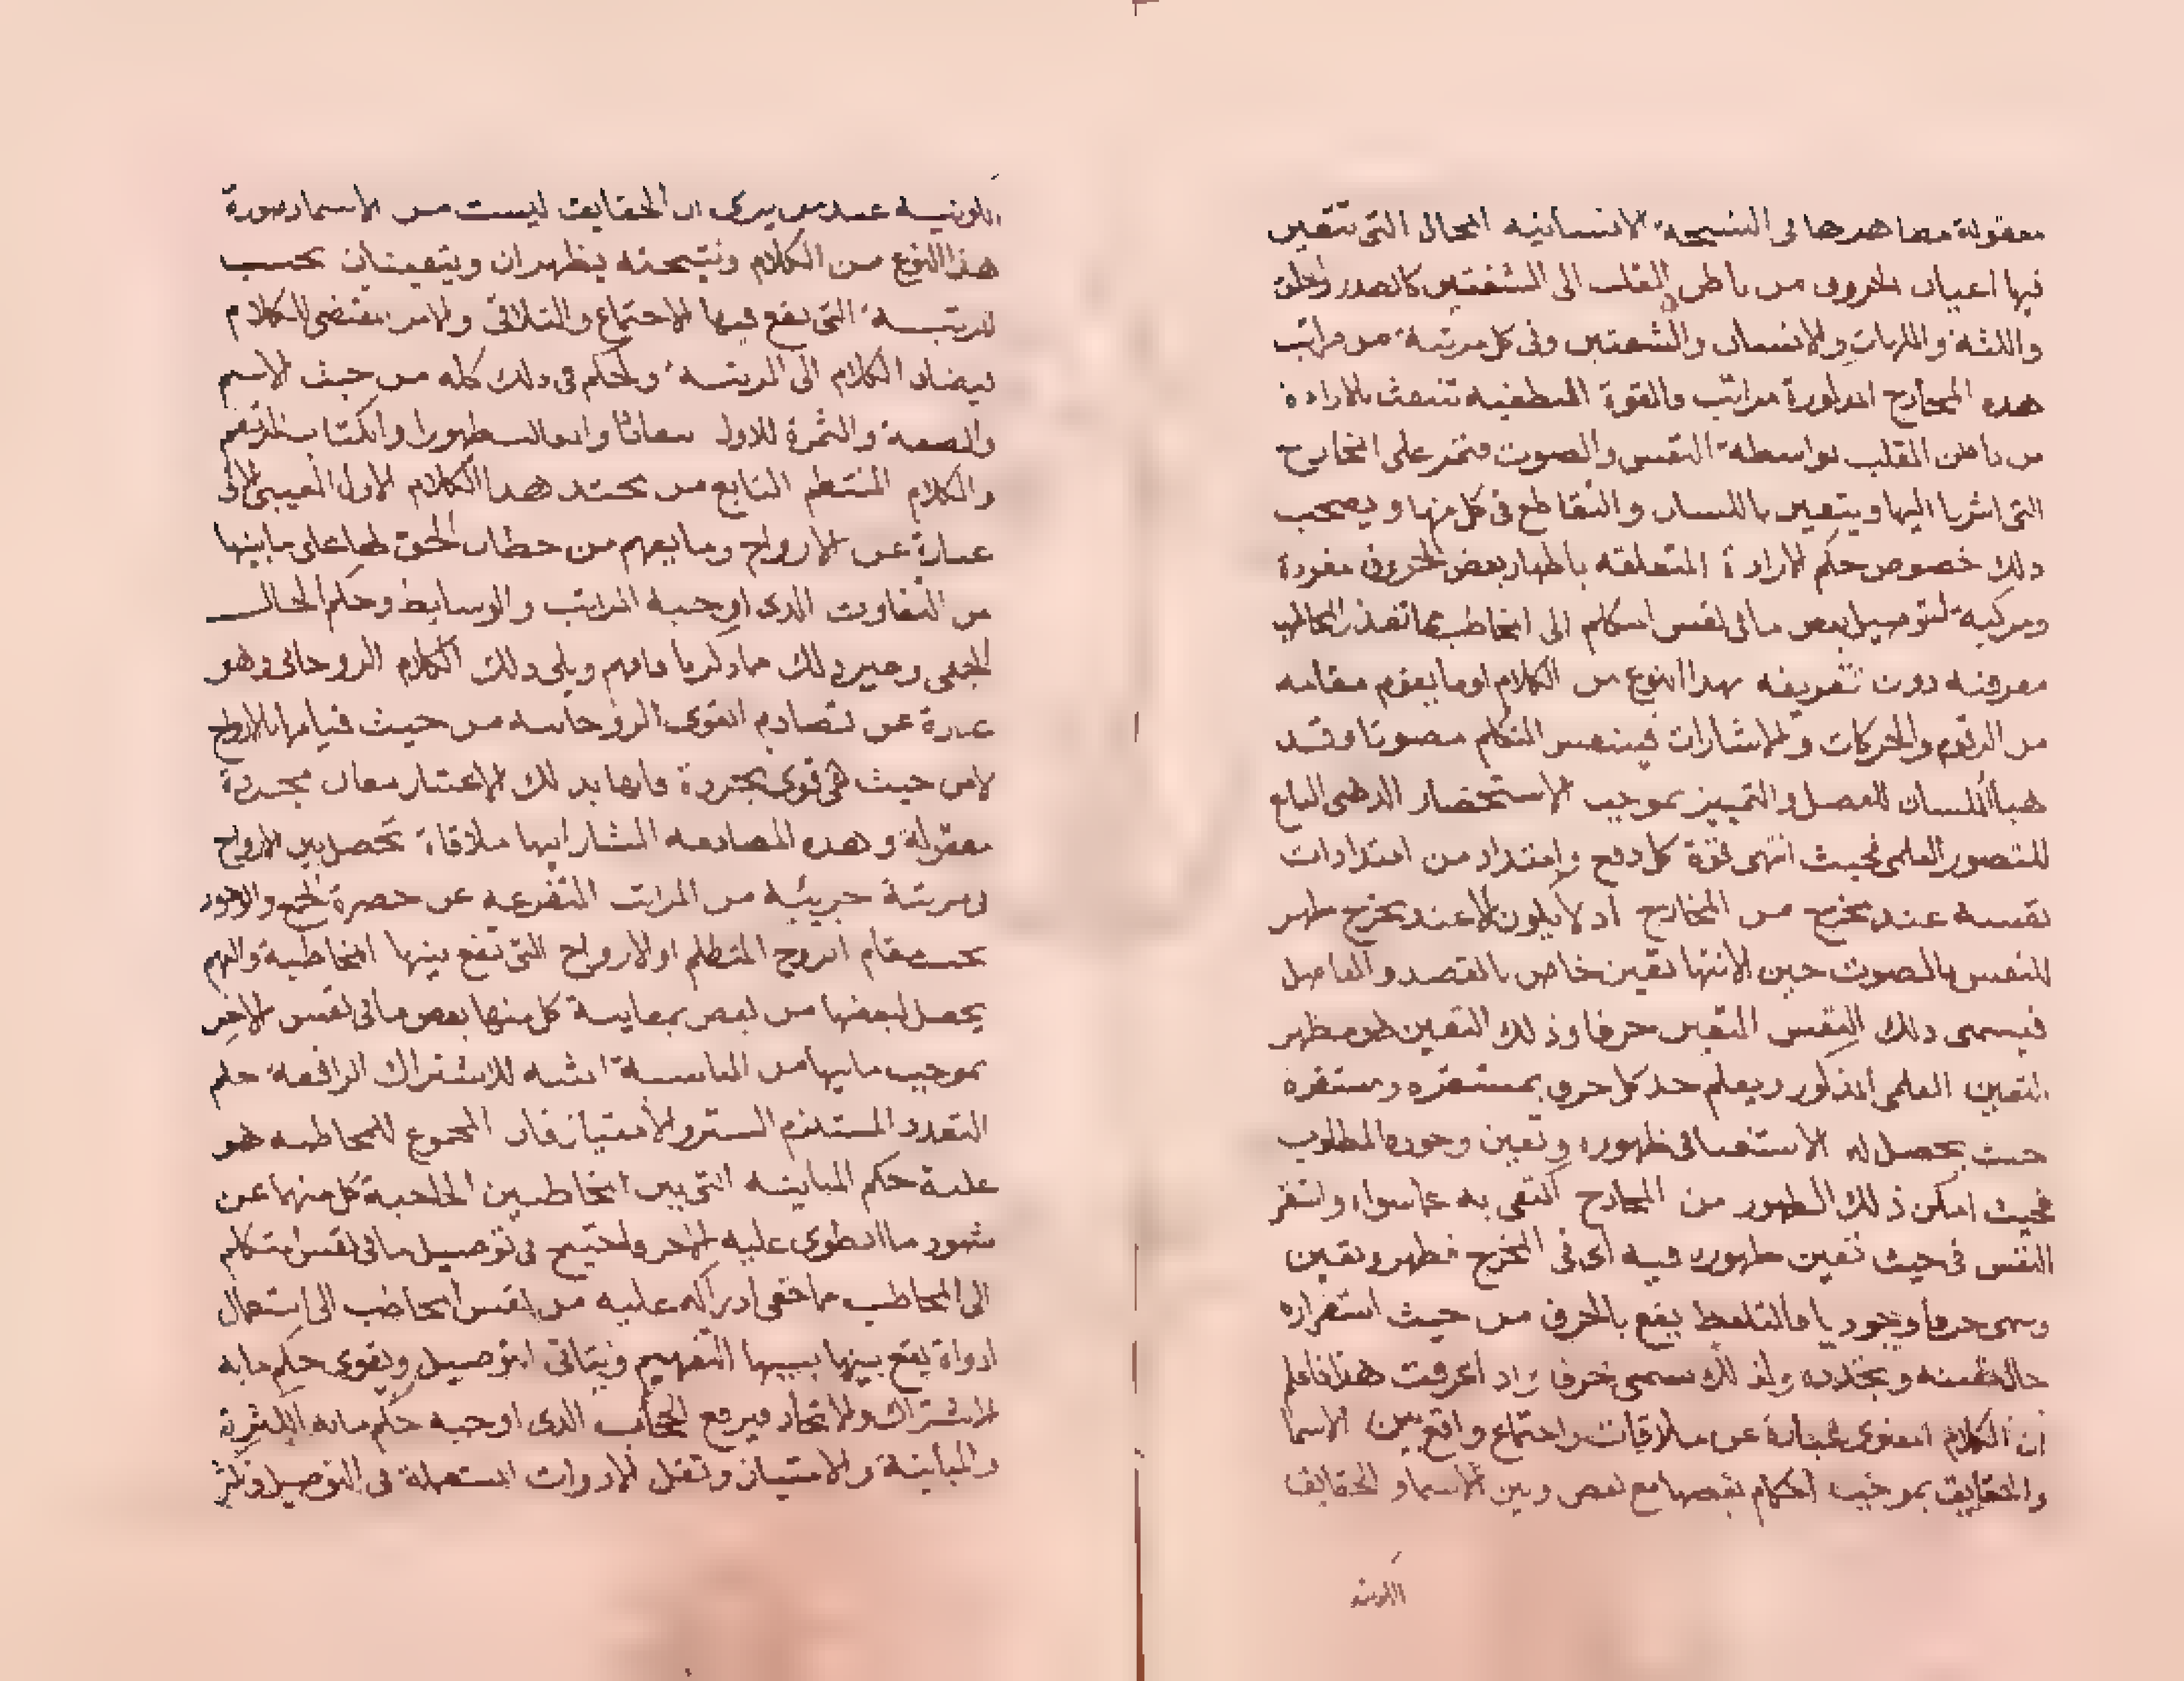 معقولة مضاهدها في النسخة الانسانيه المحال التي تتعين
فيها اعيان الحروف من باطن القلب الى الشفتين كالصدر والحلق
واللثة واللهات والانسان والشفتين وفي كل مرتبة من مراتب
هذه المخارج المذكورة مراتب والقوة النطقيه تنبعث بالارادة
من باطن القلب بواسطة النفس والصوت فتمر على المخارج
التي اشرنا اليها ويتعين باللسان والتقاطع في كل منها ويصحب
ذلك خصوص حكم الارادة المتعلقه باظهار بعض الحروف مفردة
ومركبة لتوصيل بعض ما في نفس المتكلم الى المخاطب مما تعذر المخاطب
معرفته دون تعريفه بهذا النوع من الكلام او ما يقوم مقامه
من الرقوم والحركات والاشارات فيتنفس المتكلم مصوتا وقد
هيا اللسان للفصل والتمييز بموجب الاستحضار الذهني التابع
للتصور العلمي فحيث انتهى قوة كل دفع وامتداد من امتدادات
نفسه عند مخرج من المخارج اذ لا يكون الا عند مخرج ظهر
للنفس بالصوت حين الانتها تعين خاص بالقصد والفاصل
فيسمى ذلك النفس المتعين حرفا وذلك التعين هو مظهر
التعين العلمي المذكور ويعلم حد كل حرف بمستقره ومستقره
حيث يحصل له الاستغنا في ظهوره وتعين وجوده المطلوب
فحيث امكن ذلك الظهور من المخارج اكتفى به عما سواه واستقر
النفس في حيث تعين ظهوره فيه اى في المخرج فظهر وتعين
وسمى حرفا وجوديا فالتلفظ يقع بالحرف من حيث استقراره
حال تعينه وتحدده ولذلك سمى حرفا واذ اعرفت هذا فاعلم
ان الكلام المعنوي عبارة عن ملاقات واجتماع واقع بين الاسما
والحقايق بموجب احكام بعضها مع بعض وبين الاسما والحقايق
الكونيه
الكونيه عند من يرى ان الحقايق ليست من الاسما وصورة
هذا النوع من الكلام ونتيجته يظهران ويتعينان بحسب
المرتبة التي يقع فيها الاجتماع والتلاقي والامر مقتضى الكلام
فيضاف الكلام الى المرتبة والحكم في ذلك كله من حيث الاسم
والصفة والثمرة للاول
والكلام المنتظم التابع من محتد هذا الكلام الاول الغيبي
عبارة عن الارواح وما يعهم من خطاب الحق لها على ما بينها
من التفاوت الذي اوجبه المراتب والوسايط وحكم الحال
الجمعي وغير ذلك مما ذكرنا فافهم ويلي ذلك الكلام الروحاني وهو
عبارة عن تصادم القوى الروحانيه من حيث قيامها بالارواح
لا من حيث هي قوى مجردة فانها بذلك الاعتبار معان مجردة
معقولة وهذه المصادمه المشار اليها ملاقاة تحصل بين الارواح
في مرتبة جزئية من المراتب المتفرعه عن حضرة الجمع والوجود
بحسب مقام الروح المتكلم او الارواح التي تقع بينها المخاطبة والفهم
يحصل لبعضها من بعض بمعاينة كل منها بعض ما في نفس الاخر
بموجب ما بينها من المناسبة المثبته للاشتراك الرافعة حكم
التعدد المستلزم الستر والامتياز فان المحوج للمخاطبه هو
غلبة حكم المباينه التي بين المخاطبين الحاجبة كل منهما عن
شهود ما انطوى عليه الاخر واحتيج في توصيل ما في نفس المتكلم
الى المخاطب مما خفى ادراكه عليه من نفس المخاطب الى استعمال
ادواة يقع بينها بسببها التفهيم ويتاتى التوصيل ويقوى حكم ما به
الاشتراك والاتحاد فيرفع الحجاب الذي اوجبه حكم ما به الكثرة
والمباينة والامتياز وتقل الادوات المستعملة في التوصيل وتكثر